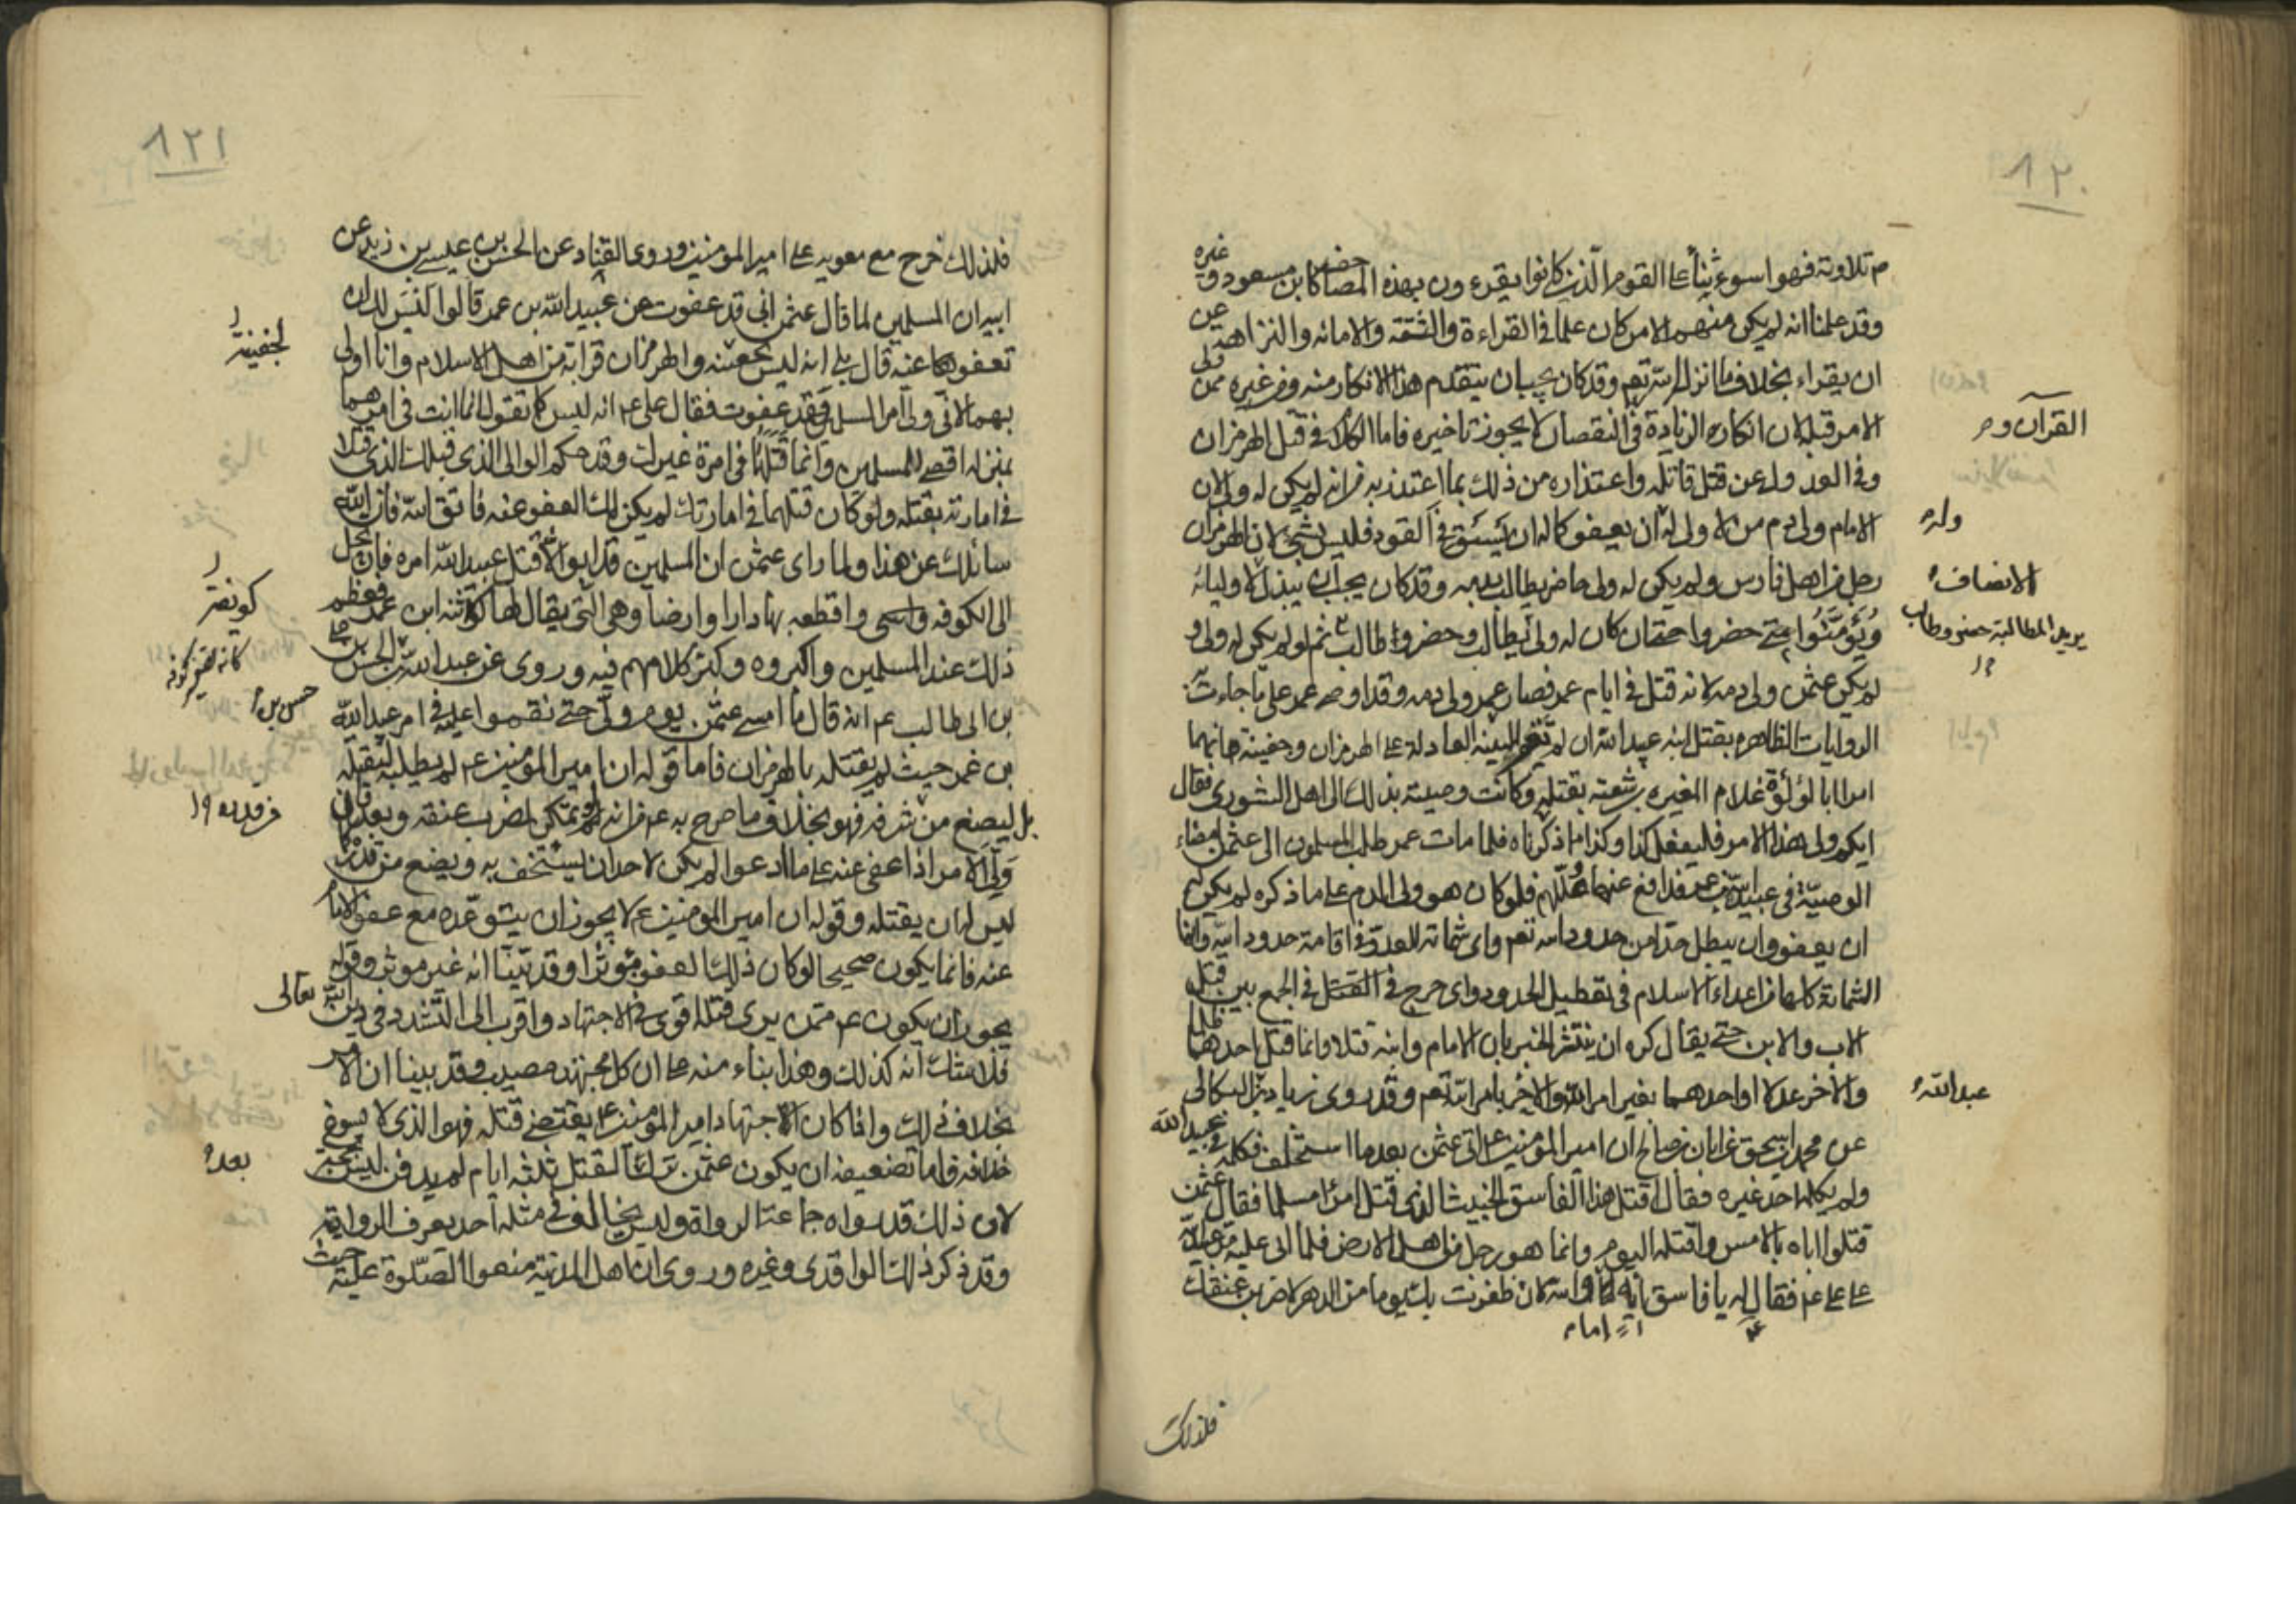 ٨٢٠
م تلاوته فهو اسوء ثناً على القوم الذين كانوا يقرءون بهذه المصاحف كابن مسعود وغيره
وقد علمنا انه لم يكن منهم الا من كان علما في القراءة والثقة والامانة والنزاهة عن
ان يقراء بخلاف ما انزل الله تعم وقد كان يجب ان يتقدم هذا الانكار منه ومن غيره ممن ولى
الامر قبله لان انكاره الزيادة في النقصان لا يجوز تاخيره فاما الكلام في قتل الهرمزان
وفي العدول عن قتل قاتله واعتذاره من ذلك بما اعتذر به من انه لم يكن له ولى لان
الامام ولى دم من لا ولى له ان يعفو كما له ان يستوفي القود فليس بشئ لان الهرمزان
رجل من اهل فارس ولم يكن له ولى حاضر يطالب بدمه وقد كان يجب ان يبذل لاوليائه
ويؤمنوا متى حضروا حتى ان كان له ولى يطالب وحضر وطالب ثم لو لم يكن له ولى
لم يكن عثمن ولى دمه لانه قتل في ايام عمر فصار عمر ولى دمه وقد اوصى عمر على ما جاءت به
الروايات الظاهره بقتل ابنه عبيد الله ان لم تقم البينه العادلة على الهرمزان وجفينة انهما
امرا ابا لؤلؤة غلام المغيره بن شعبه بقتله وكانت وصيته بذلك الى اهل الشورى فقال
ايكم ولى هذا الامر فليفعل كذا وكذا مما ذكرناه فلما مات عمر طلب المسلمون الى عثمن امضاء
الوصية في عبيد الله بن عمر فدافع عنها وعللهم فلو كان هو ولى الدم على ما ذكره لم يكن له
ان يعفو وان يبطل حدا من حدود الله تعم واى شماتة للعدو في اقامة حدود الله وانما
الشماتة كلها من اعداء الاسلام في تعطيل الحدود واى حرج في القتل في الجمع بين قتل
الاب والابن حتى يقال كره ان ينتشر الخبر بان الامام وابنه قتلا وانما قتل احدهما ظلما
والآخر عدلا او احدهما بغير امر الله والآخر بامر الله تعم وقد روى زياد بن البكائي
عن محمد بن اسحق عن ابان بن صالح ان امير المؤمنين ع اتى عثمن بعد ما استخلف فكلمه في عبيد الله
ولم يكلمه احد غيره فقال اقتل هذا الفاسق الخبيث الذي قتل امرأ مسلما فقال عثمن
قتلوا اباه بالامس واقتله اليوم وانما هو رجل من اهل الارض فلما ابى عليه مر عبيد الله
على على عم فقال له يا فاسق ايه اما والله لئن ظفرت بك يوما من الدهر لاضربن عنقك
القرآن و م
وله
الانصاف
يريد المطالبة حضر وطالب
عبد الله
اما م
فلذلك
٨٢١
فلذلك خرج مع معوية على امير المؤمنين وروى القناد عن الحسن بن عيسى بن زيد عن
ابيه ان المسلمين لما قال عثمن انى قد عفوت عن عبيد الله بن عمر قالوا اليس لك ان
تعفو عنه قال بلى انه ليس لجفينه والهرمزان قرابة من اهل الاسلام وانا اولى
بهما لانى ولى امر المسلمين فقد عفوت فقال على عم انه ليس كما تقول انما انت في امرهما
بمنزلة اقصى المسلمين وانما قتلهما في امرة غيرك وقد حكم الوالى الذي قبلك الذي قتلا
في امارته بقتله ولو كان قتلهما في امارتك لم يكن لك العفو عنه فاتق الله فان الله
سائلك عن هذا ولما راى عثمن ان المسلمين قد ابوا الا قتل عبيد الله امره فارتحل
الى الكوفه واقطعه بها دارا وارضا وهي التي يقال لها كويفة ابن عمر فعظم
ذلك عند المسلمين واكبروه وكثر كلامهم فيه وروى عن عبد الله بن الحسن بن على
بن ابى طالب عم انه قال ما امسى عثمن يوم ولى حتى نقموا عليه في امر عبيد الله
بن عمر حيث لم يقتله بالهرمزان فاما قوله ان امير المؤمنين عم لم يطلبه ليقتله
بل ليضع من قدره فهو بخلاف ما صرح به عم من انه لو تمكن لضرب عنقه وبعد فان
ولى الامر اذا عفى عنه على ما ادعوا لم يكن لاحد ان يستخف به ويضع من قدره كما
ليس له ان يقتله وقوله ان امير المومنين عم لا يجوز ان يتوعده مع عفو الامام
عنه فانما يكون صحيحا لو كان ذلك العفو مؤثرا وقد بينا انه غير موثر وقوله
يجوز ان يكون عم ممن يرى قتله اقوى في الاجتهاد واقرب الى التشدد في دين الله تعالى
فلا شك انه كذلك وهذا بناء منه على ان كل مجتهد مصيب وقد بينا ان الامر
بخلاف ذلك واذا كان الاجتهاد امير المومنين عم يقتضى قتله فهو الذي لا يسوغ
خلافه فاما تضعيفه ان يكون عثمن ترك القتل ثلثه ايام لم يدفن ليس بحجة
لان ذلك قد رواه جماعة الرواة وليس يخالف في مثله احد يعرف الرواية
وقد ذكر ذلك الواقدى وغيره وروى ان اهل المدينة منعوا الصلوة عليه حيث
لجفينة
كويفه
كانه تصغير كوفه
حسن بن
من قدره
بعد